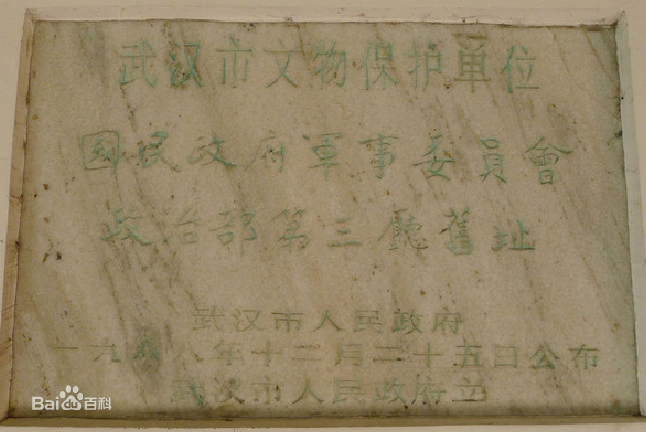 武汉市文物保护单位
國民政府軍事委員會
政治部第三廳舊址
武汉市人民政府
一九八八年十二月二十五日公布
武汉市人民政府立
Bai du 百科